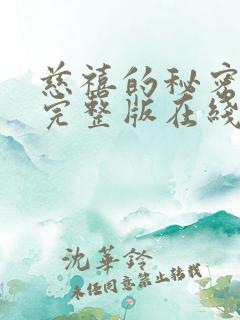 慈禧的秘密
完整版在线
沈华铃
未经同意禁止转载